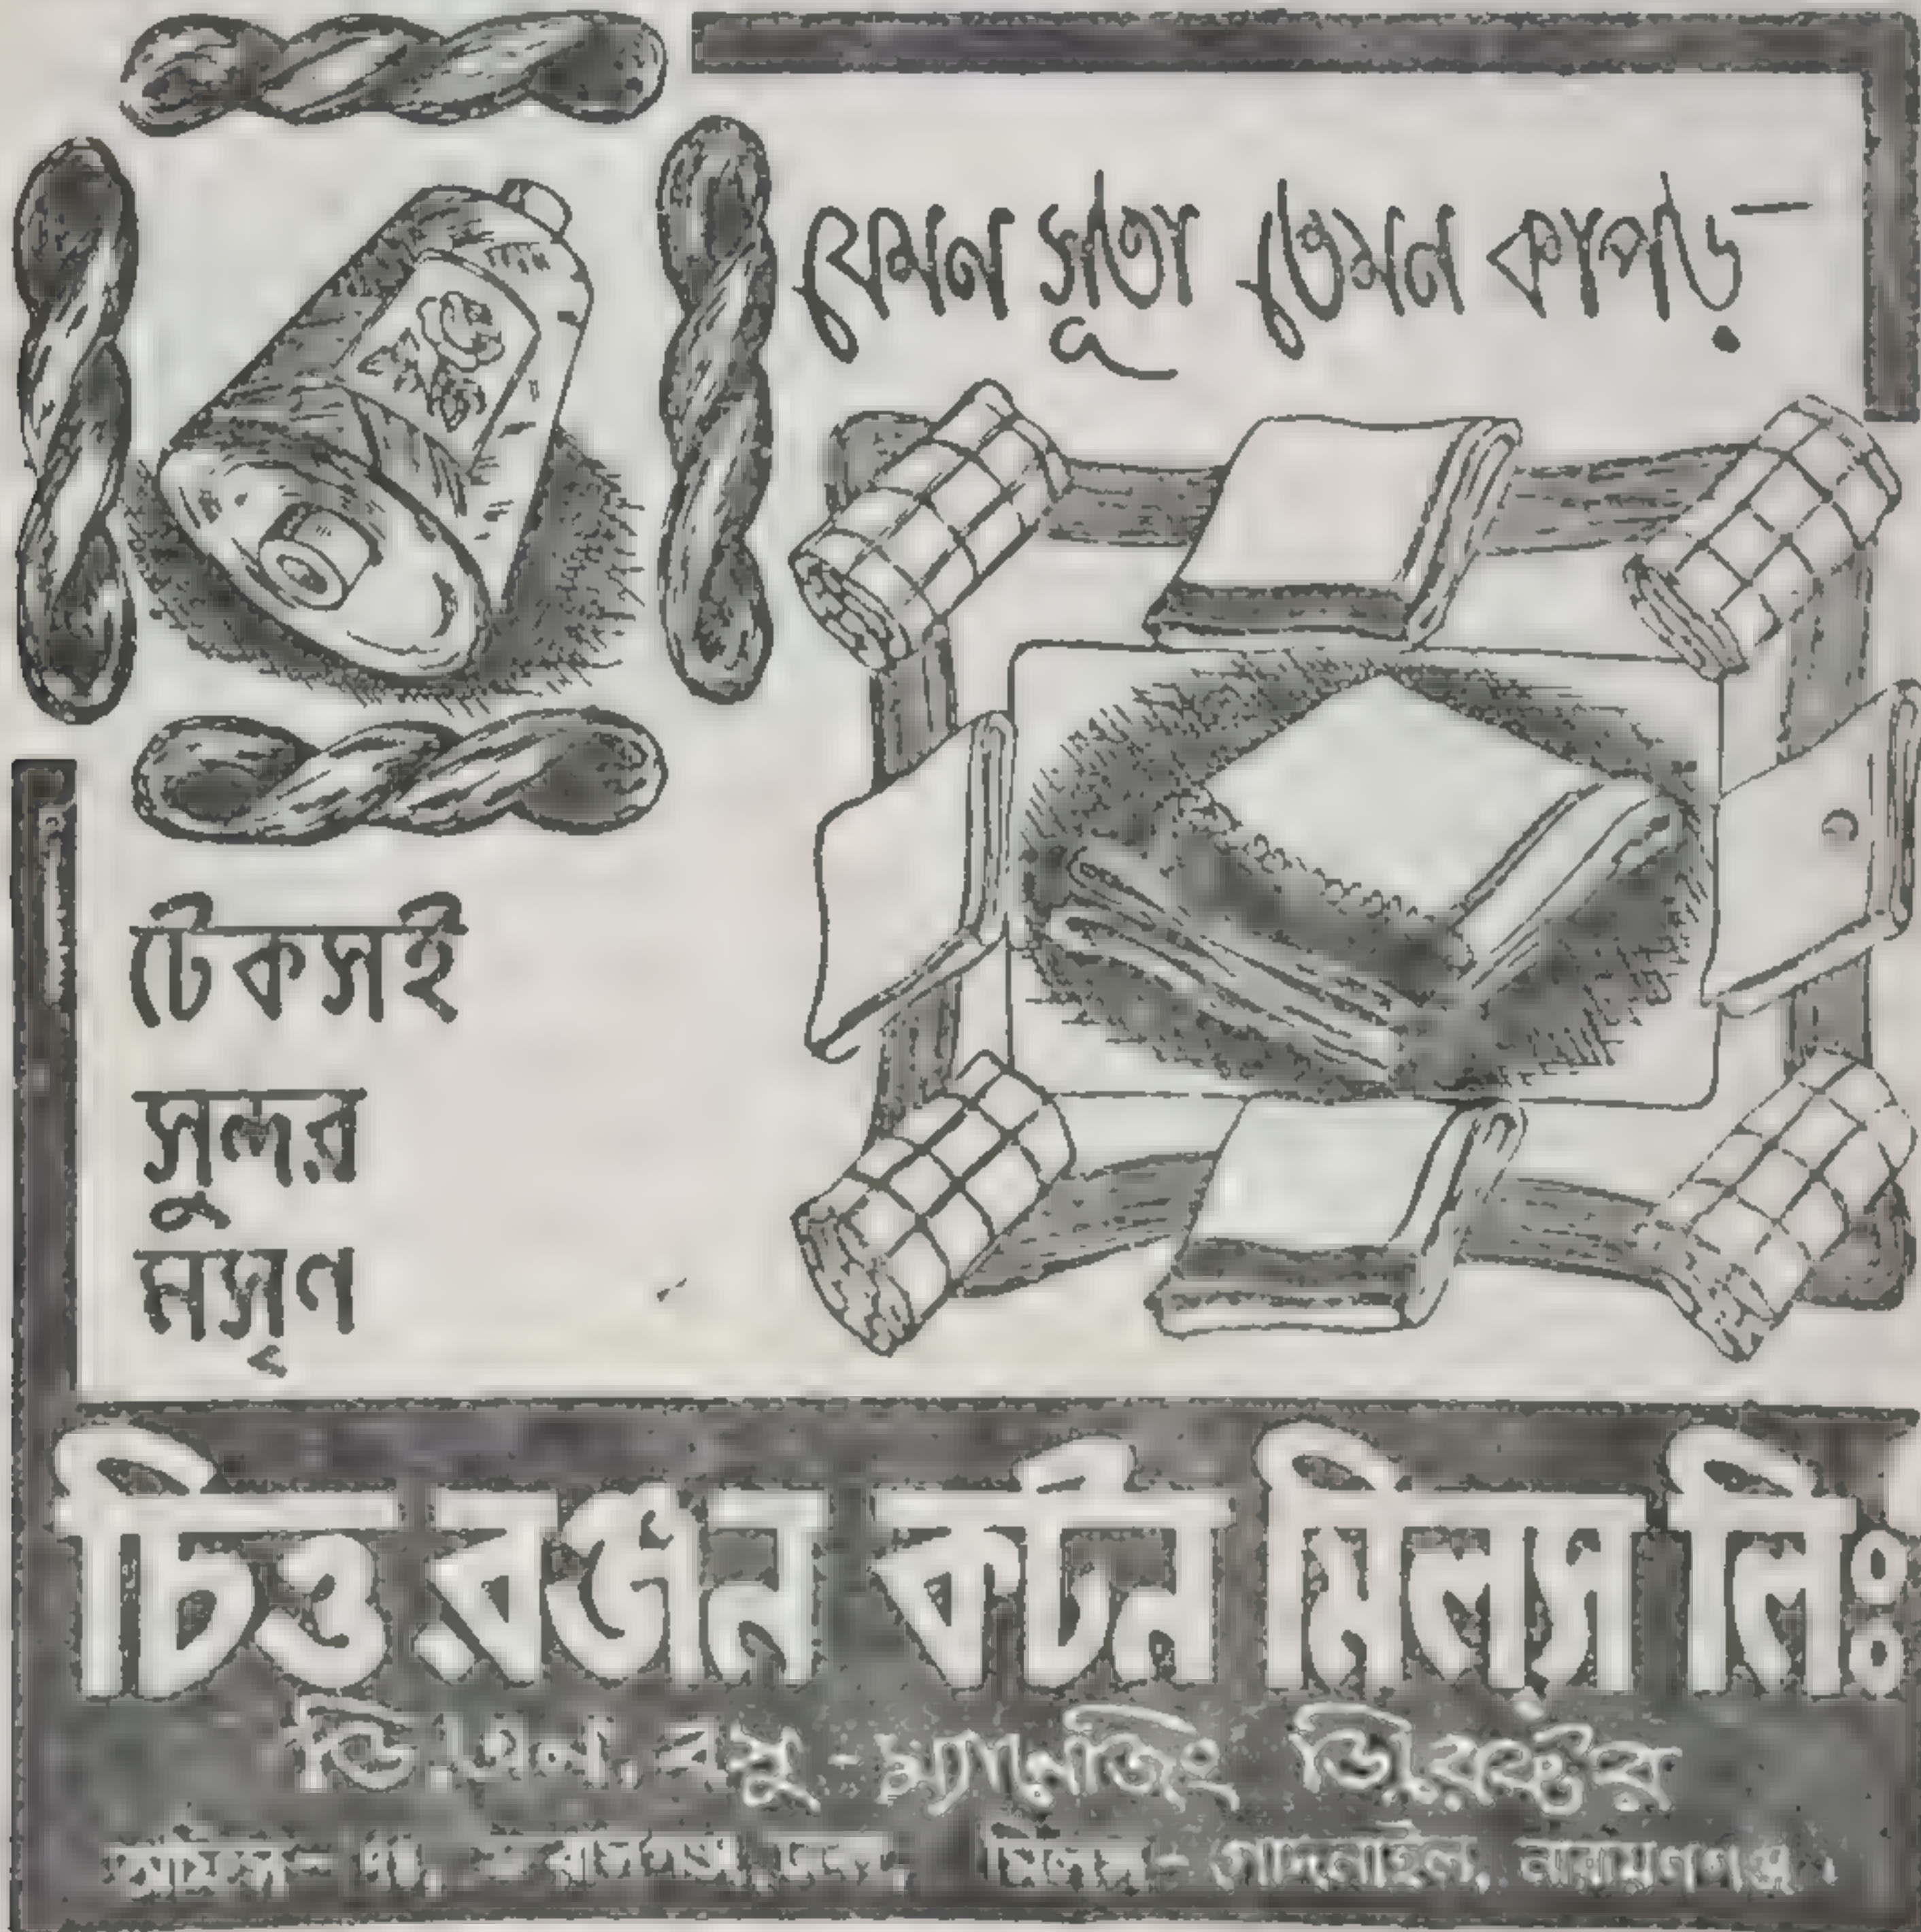 যেমন সূতা তেমন কাপড়—
টেকসই
সুন্দর
মসৃণ
চিত্তরঞ্জন কটন মিলস লিঃ
ডি.এন.বসু - ম্যানেজিং ডিরেক্টর
অফিস- মিলস- গোদনাইল, নারায়ণগঞ্জ।